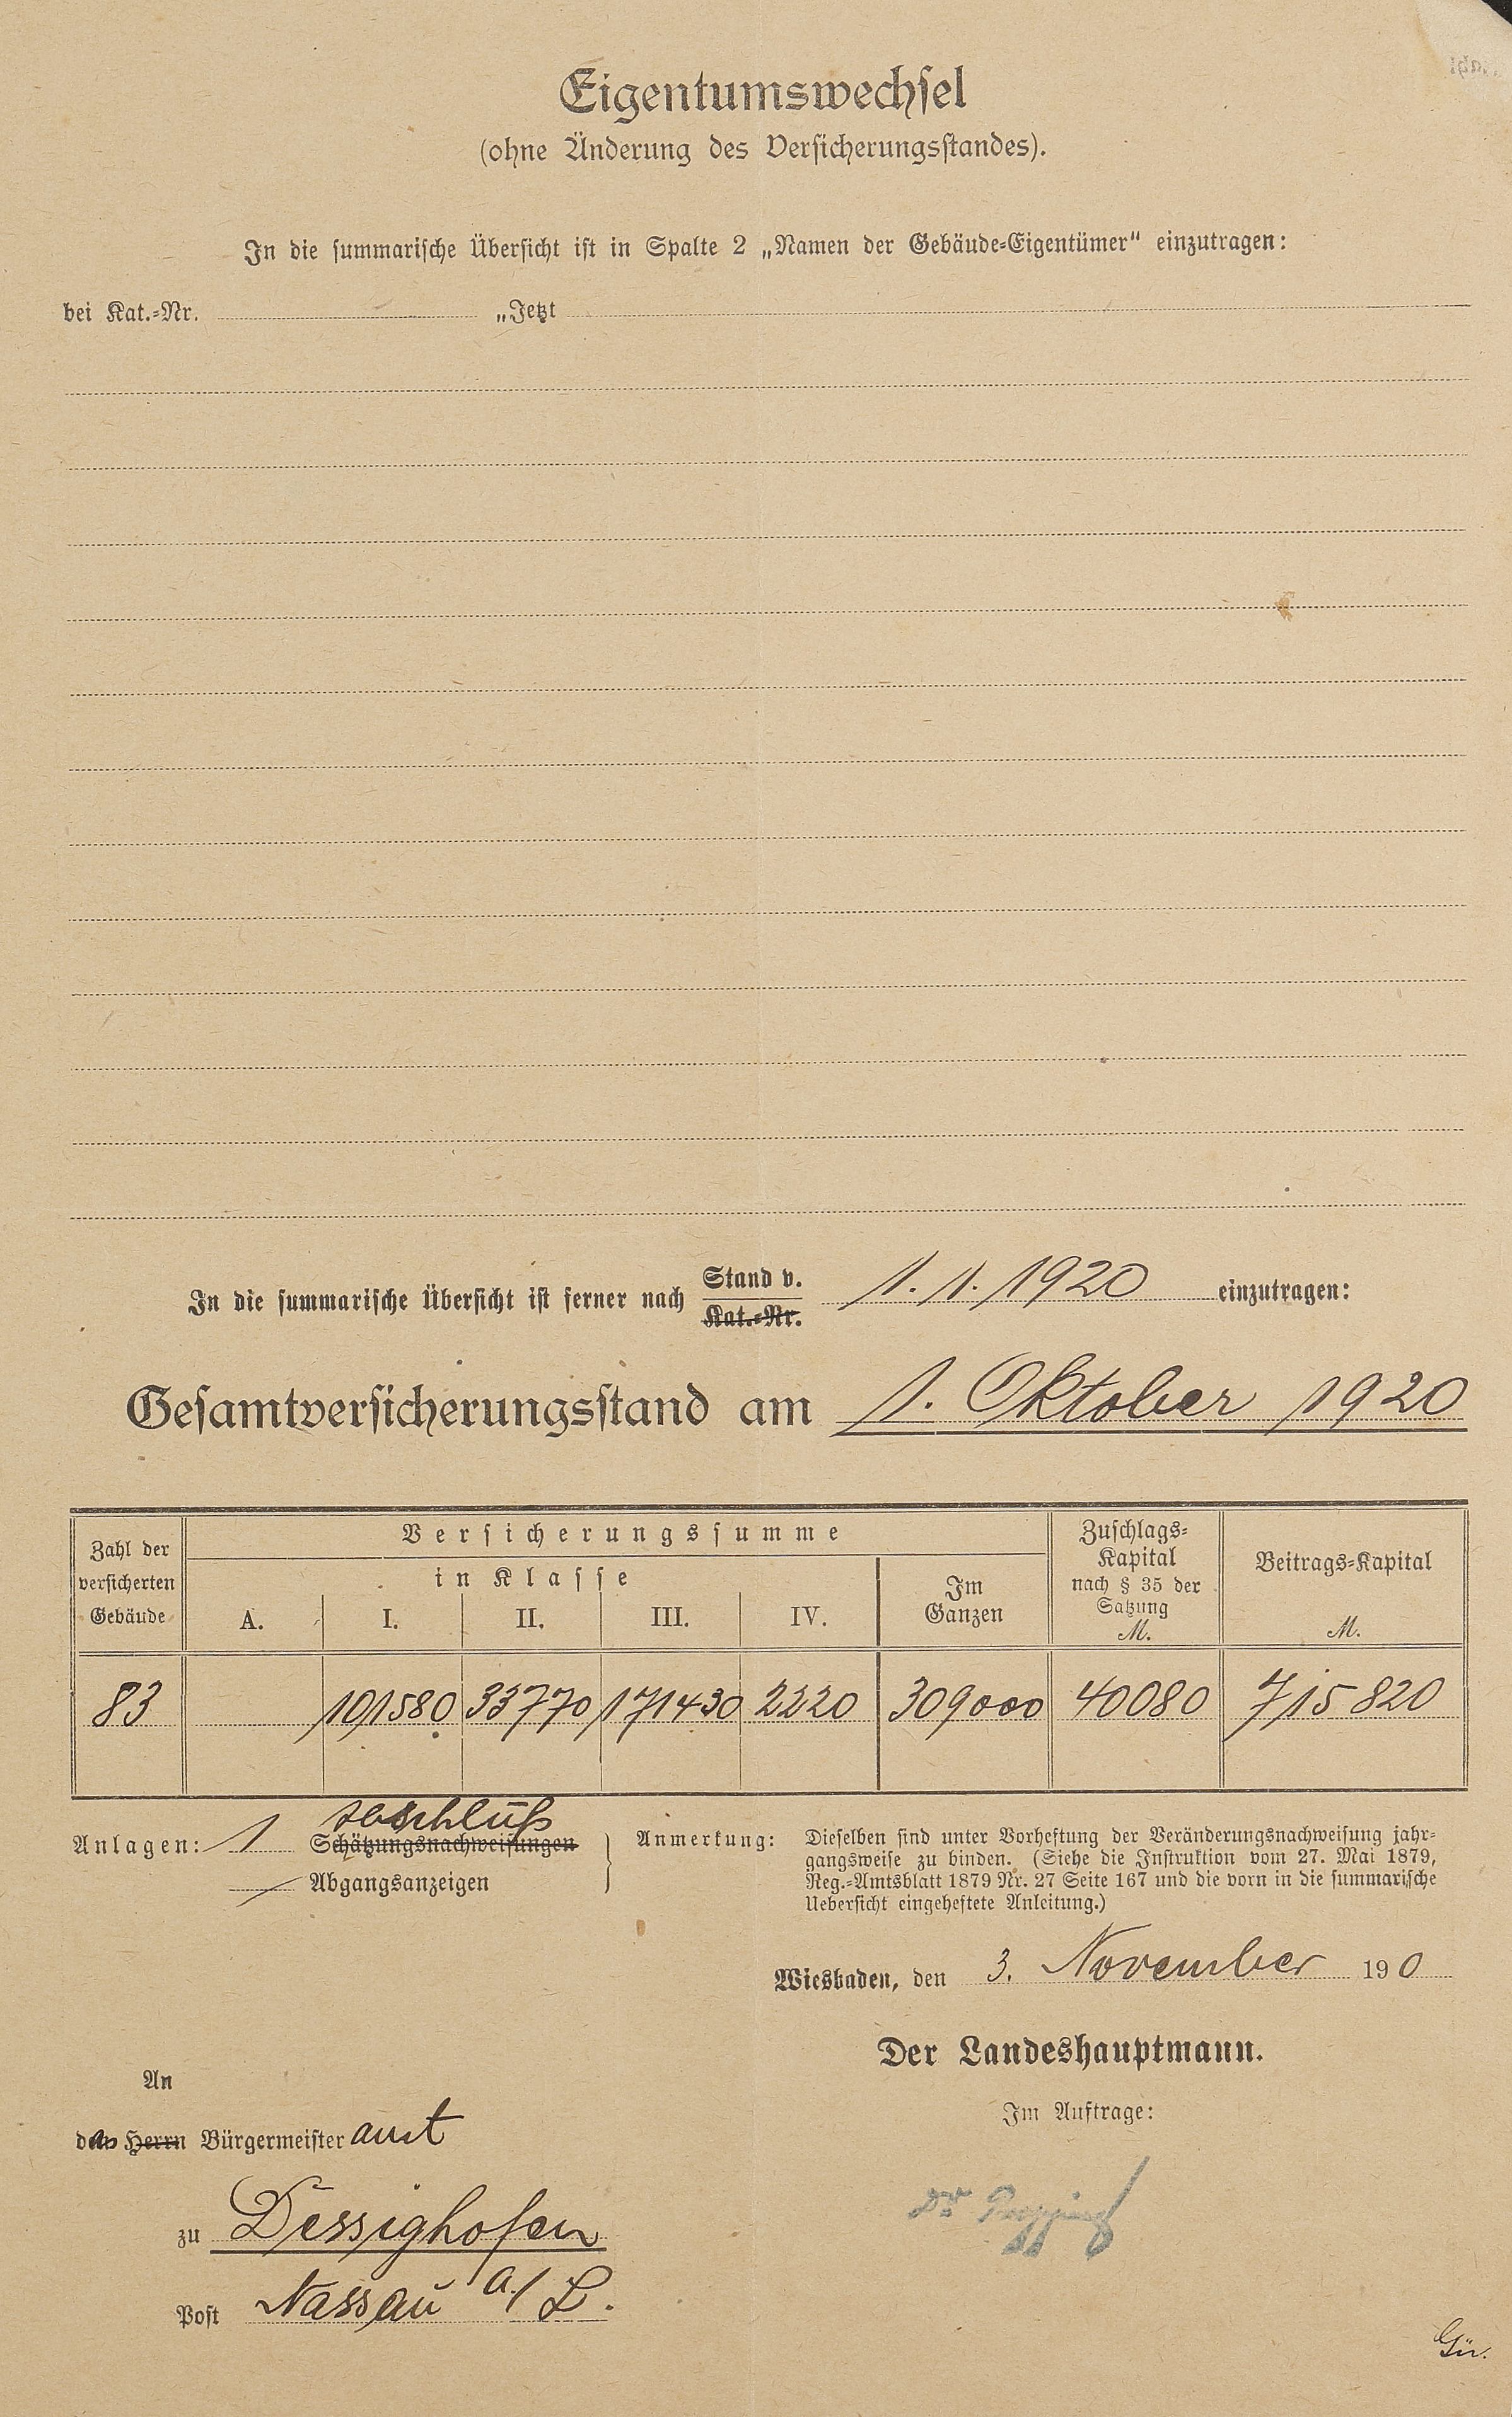 Eigentumswechsel
(ohne Änderung des Versicherungsstandes).
In die summarische Übersicht ist in Spalte 2 „Namen der Gebäude-Eigentümer“ einzutragen:
bei Kat.-Nr. „Jetzt
In die summarische Übersicht ist ferner nach Stand v. 1.1.1920 einzutragen:
Kat.-Nr.
Gesamtversicherungsstand am 1. Oktober 1920
Zahl der versicherten Gebäude
Versicherungssumme
in Klasse
A. I. II. III. IV.
Im Ganzen
Zuschlags-Kapital nach § 35 der Satzung M.
Beitrags-Kapital M.
83 101580 33770 171430 2220 309000 40080 715820
Abschluß
Anlagen: 1 Schätzungsnachweisungen
Abgangsanzeigen
Anmerkung: Dieselben sind unter Vorheftung der Veränderungsnachweisung jahr-
gangsweise zu binden. (Siehe die Instruktion vom 27. Mai 1879,
Reg.-Amtsblatt 1879 Nr. 27 Seite 167 und die vorn in die summarische
Uebersicht eingeheftete Anleitung.)
Wiesbaden, den 3. November 190
Der Landeshauptmann.
Im Auftrage:
Dr.
An
das Herrn Bürgermeisteramt
zu Dessighofen
Post Nassau a/L.